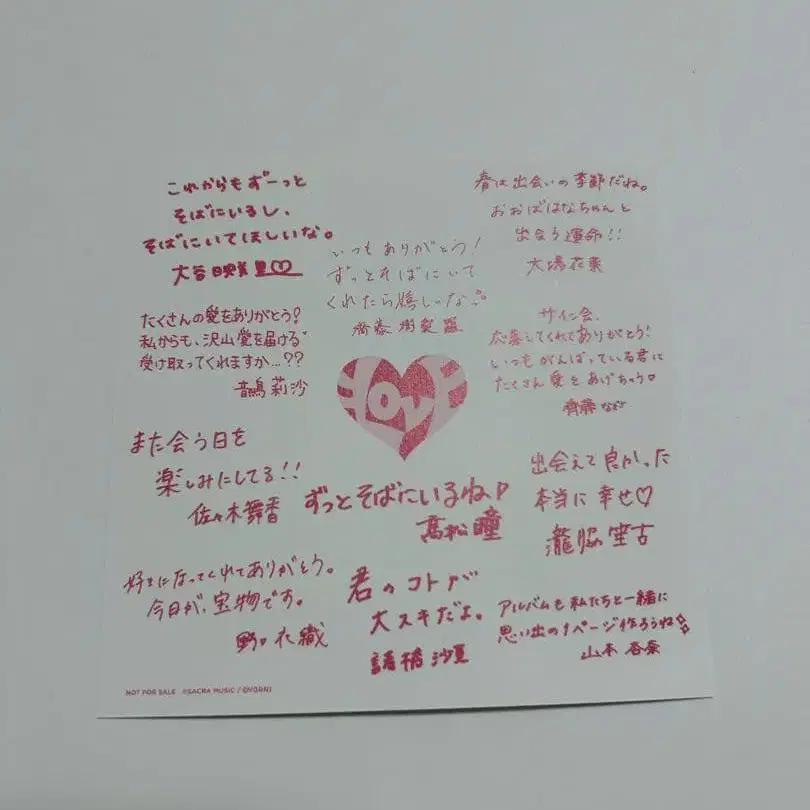 これからもずーっと
そばにいるし、
そばにいてほしいな。
大谷映美里♡
春は出会いの季節だね。
おおばはなちゃんと
出会う運命!!
大場花菜
いつもありがとう!
ずっとそばにいて
くれたら嬉しいな
齊藤樹愛羅
たくさんの愛をありがとう!
私からも、沢山愛を届ける
受け取ってくれますか…??
音嶋莉沙
サイン会、
応募してくれてありがとう!
いつもがんばっている君に
たくさん愛をあげちゃう
齊藤なぎさ
LOVE
また会う日を
楽しみにしてる!!
佐々木舞香
ずっとそばにいるね♪
髙松瞳
出会えて良かった
本当に幸せ♡
瀧脇笙古
好きになってくれてありがとう。
今日が、宝物です。
野口衣織
君のコトが
大スキだよ。
諸橋沙夏
アルバムも私たちと一緒に
思い出の1ページ作ろうね
山本杏奈
NOT FOR SALE ©SACRA MUSIC / ©YOANI